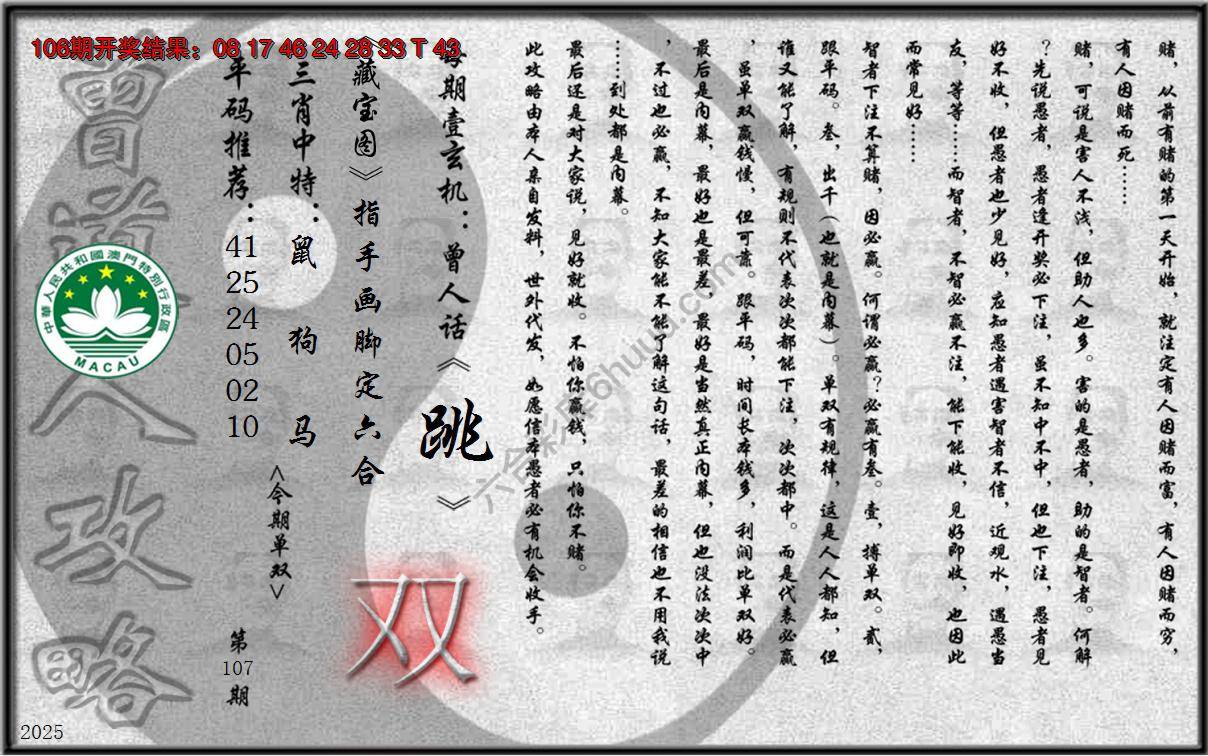 106期开奖结果：08 17 46 24 28 33 T 43
赌，从前有赌的第一天开始，就注定有人因赌而富，有人因赌而穷，
有人因赌而死……
赌，可说是害人不浅，但助人也多。害的是愚者，助的是智者。何解
？先说愚者，愚者逢开奖必下注，虽不知中不中，但也下注，愚者见
好不收，但愚者也少见好，应知愚者遇害智者不信，近观水，遇愚当
友，等等……而智者，不智必赢不注，能下能收，见好即收，也因此
而常见好……
智者下注不算赌，因必赢。何谓必赢？必赢有叁。壹，搏单双。贰，
跟平码。叁，出千（也就是内幕）。单双有规律，这是人人都知，但
谁又能了解，有规则不代表次次都能下注，次次都中。而是代表必赢
，虽单双赢钱慢，但可靠。跟平码，时间长本钱多，利润比单双好。
最后是内幕，最好也是最差，最好是当然真正内幕，但也没法次次中
，不过也必赢，不知大家能不能了解这句话，最差的相信也不用我说
……到处都是内幕。
最后还是对大家说，见好就收。不怕你赢钱，只怕你不赌。
此攻略由本人亲自发料，世外代发，如愿信本愚者必有机会收手。
每期壹玄机：曾人话《跳》
《藏宝图》指手画脚定六合
三肖中特：鼠 狗 马
平码推荐：41 25 24 05 02 10
<今期单双>
双
第107期
曾道人攻略
中華人民共和國澳門特別行政區
MACAU
六合彩库6huu.com
2025